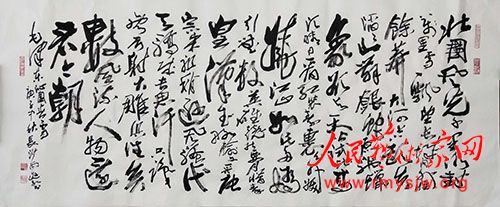 北国风光千里冰封
万里雪飘望长城内外惟
餘莽莽大河上下顿失滔
滔山舞銀蛇原驰蜡
象欲与天公试比高
须晴日看红装素裹分外妖
娆江山如此多娇
引无数英雄竞折腰惜秦
皇汉武略输文采唐
宗宋祖稍逊风骚一代
天骄成吉思汗只识
弯弓射大雕俱往矣
数风流人物还
看今朝
毛泽东沁园春雪
人民艺术家网
www.rmysjw.org